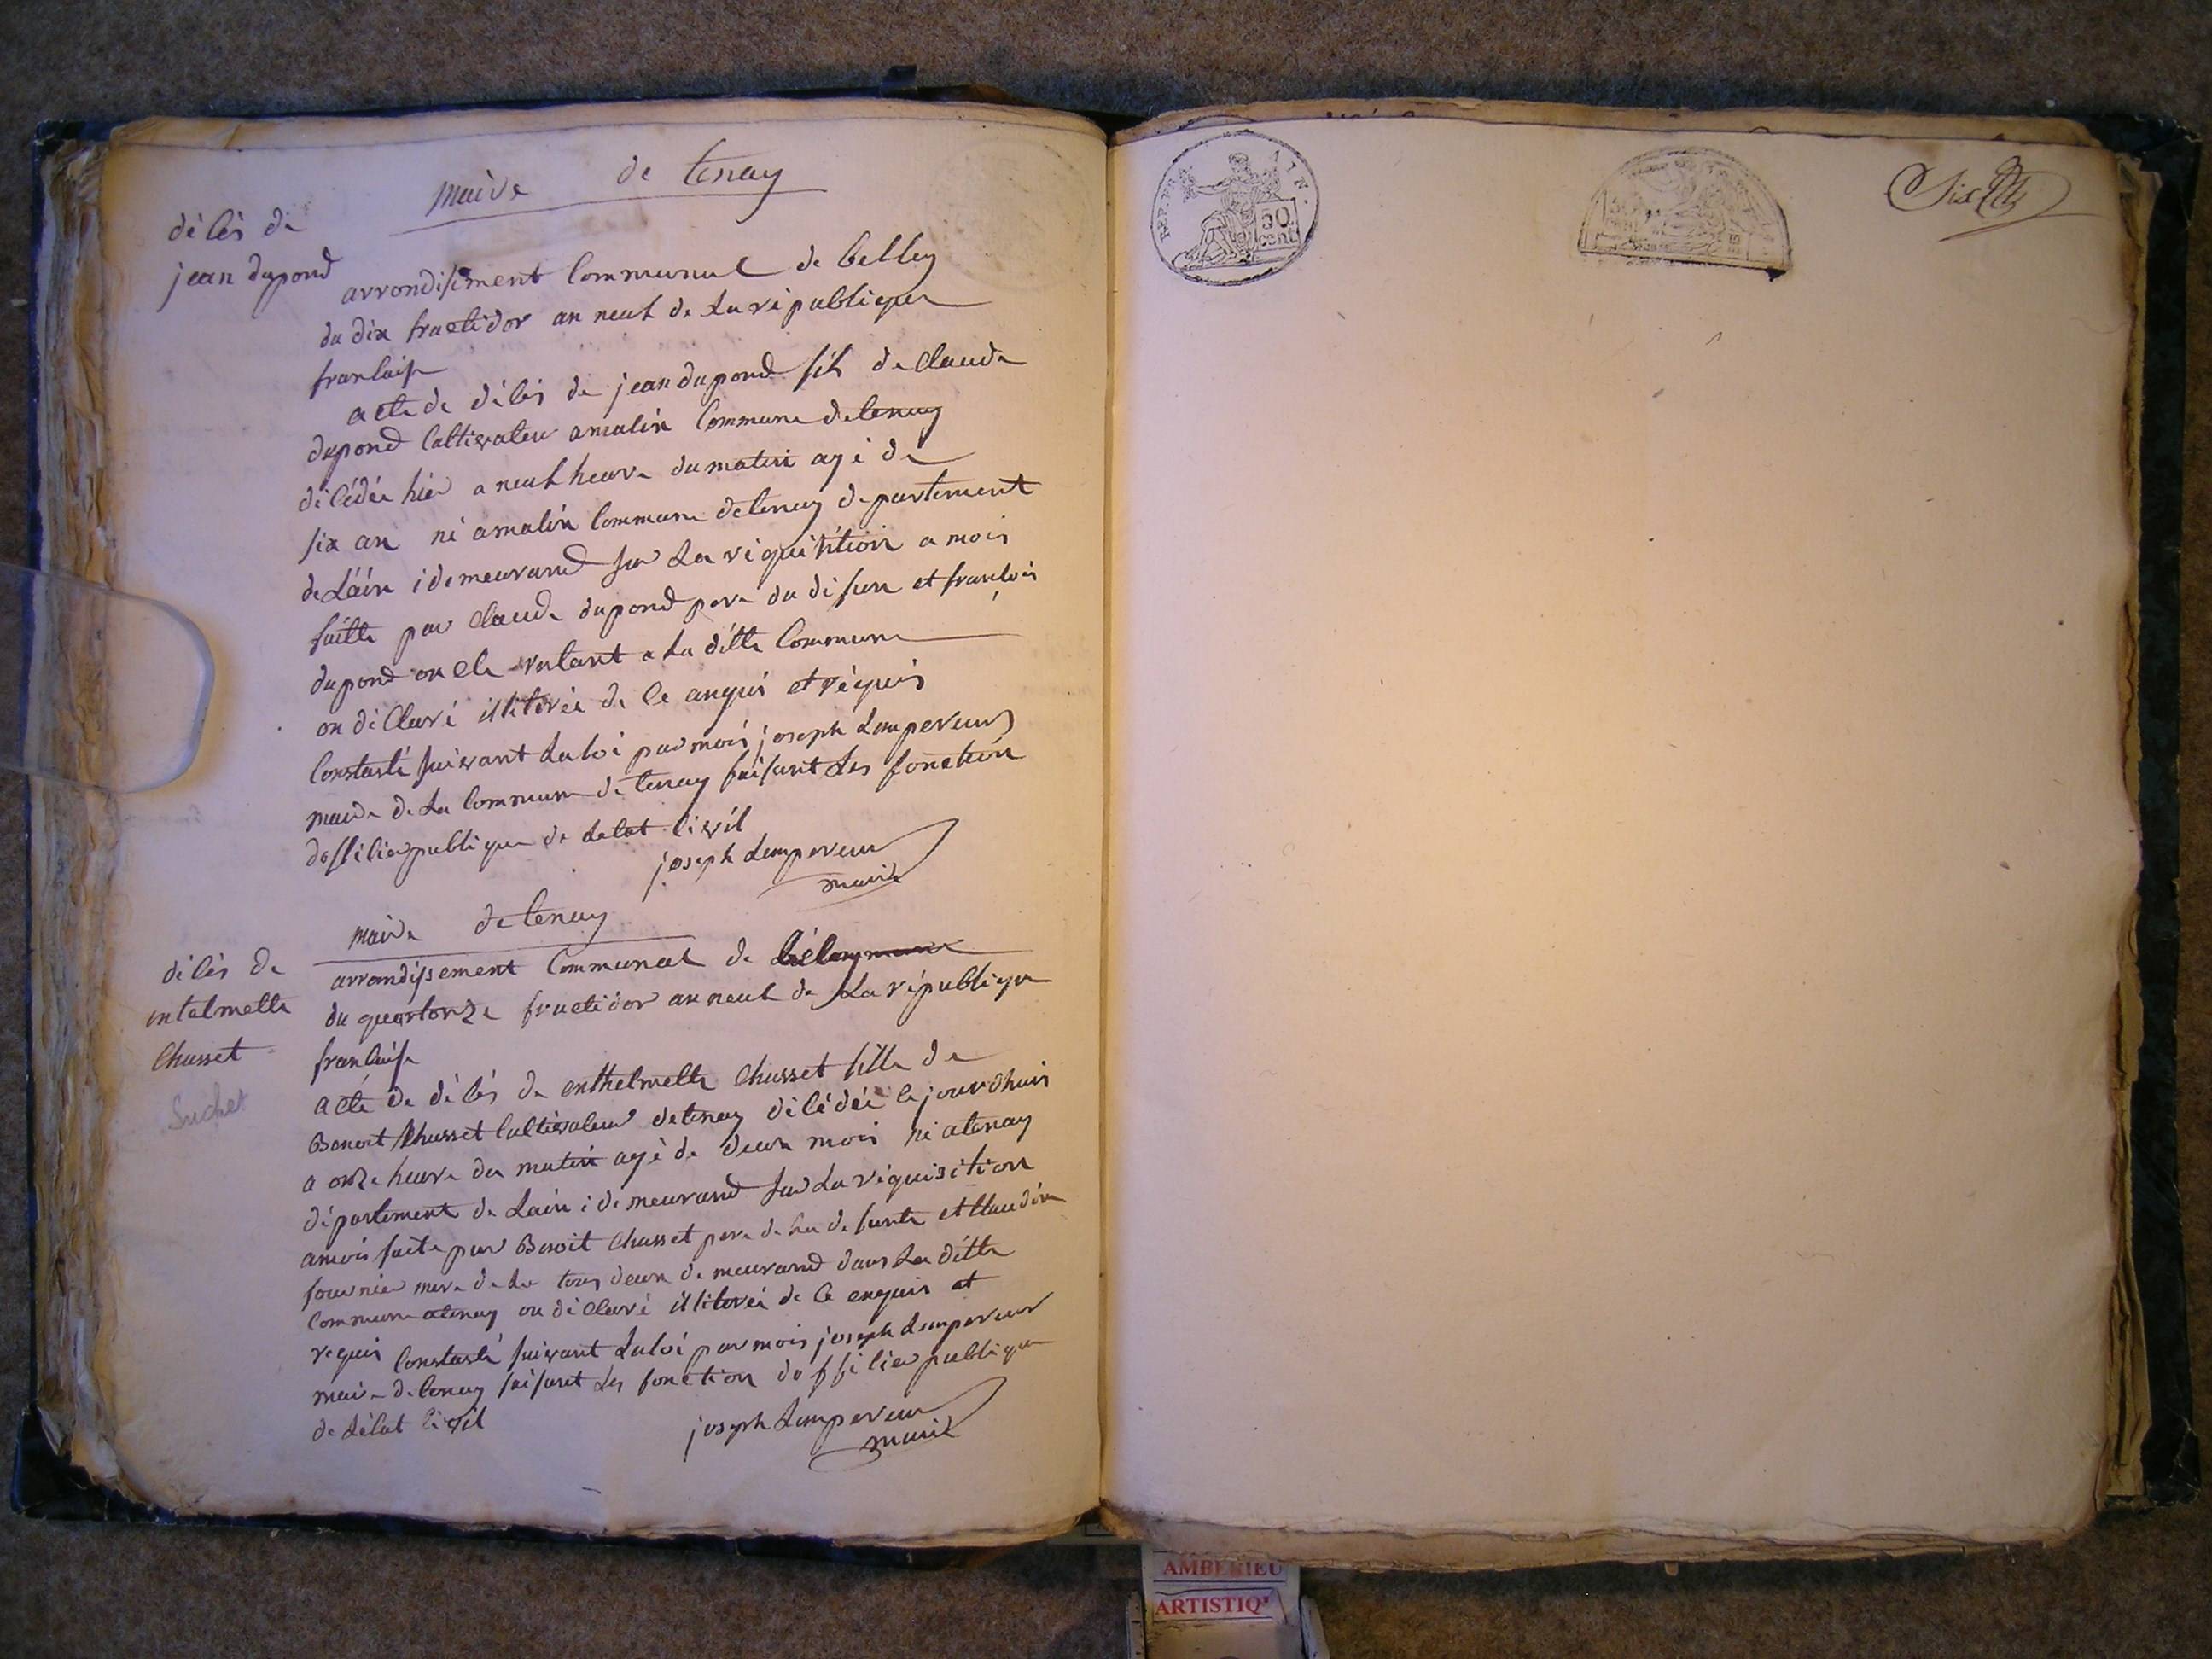 maire de tenay
décès de
jean dupond
arrondissement Communal de belley
du dix fructidor an neuf de La république
francaise
acte de décès de jean dupond fils de Claude
dupond Cultivateur a malin Commune de tenay
décédée hier a neuf heure du matin agé de
six an né a malin Commune de tenay departement
de Láin i demeurand sur La réquisition a mois
faitte par Claude dupond pere du défun et francois
dupond oncle a La ditte Commune
on déClaré illitéréi de Ce anquis et réquis
Constasté suivant La loi par mois joseph Lempereur
maire de La Commune de tenay faisant Les fonction
dofficier publique de Letat Civil
joseph Lempereur
maire
maire de tenay
décès de
entelmette
Chusset
Suchet
arrondissement Communal de
du quartorze fructidor an neuf de La république
francaise
acte de décès de enthelmette Chusset fille de
Benoit Chusset Cultivateur de tenay décédée Ce jourdhuis
a onze heure du matin agé de deux mois né a tenay
département de Lain i demeurand sur La réquisition
a mois faite par Benoit Chusset pere de La defunte et Claudine
fournier mere de La tous deux demeurand dans La ditte
Commune a tenay on déClaré illitéréi de Ce enquis et
requis Constasté suivant La loi par mois joseph Lempereur
maire de tenay faisant Les fonction dofficier publique
de Létat Civil
joseph Lempereur
maire
REP. FRA
AIN.
50
cent
Six
AMBERIEU
ARTISTIQ'